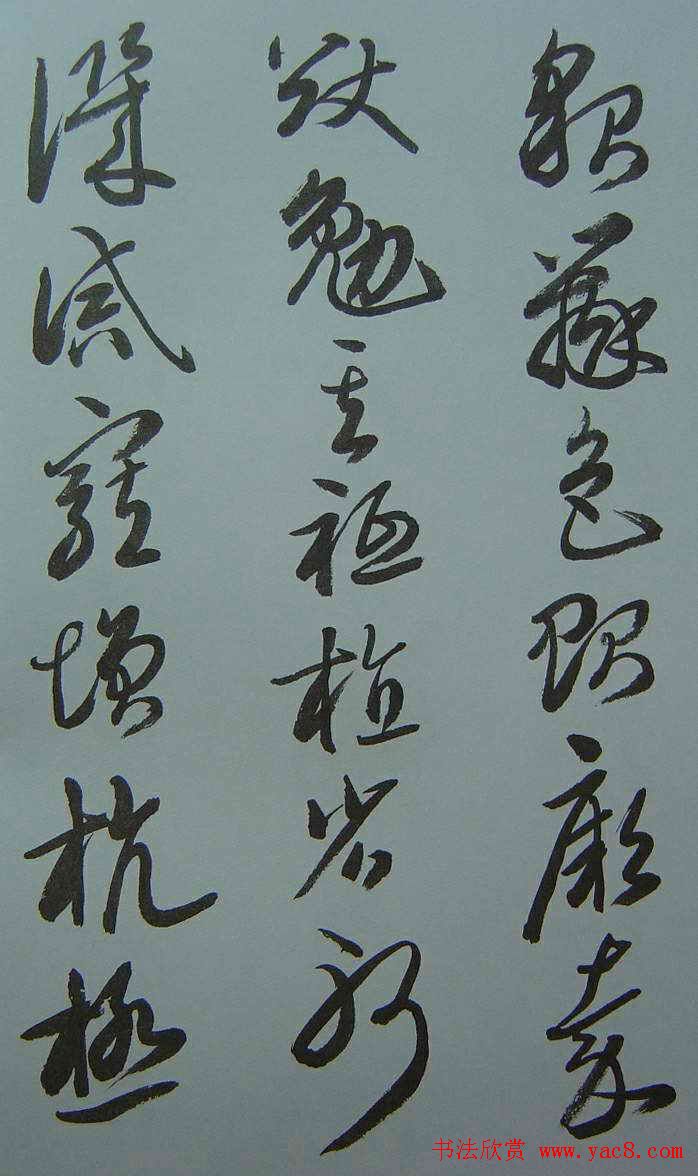 貌辨色貽厥嘉
猷勉其祗植省躬
譏誡寵增抗極
书法欣赏 www.yac8.com